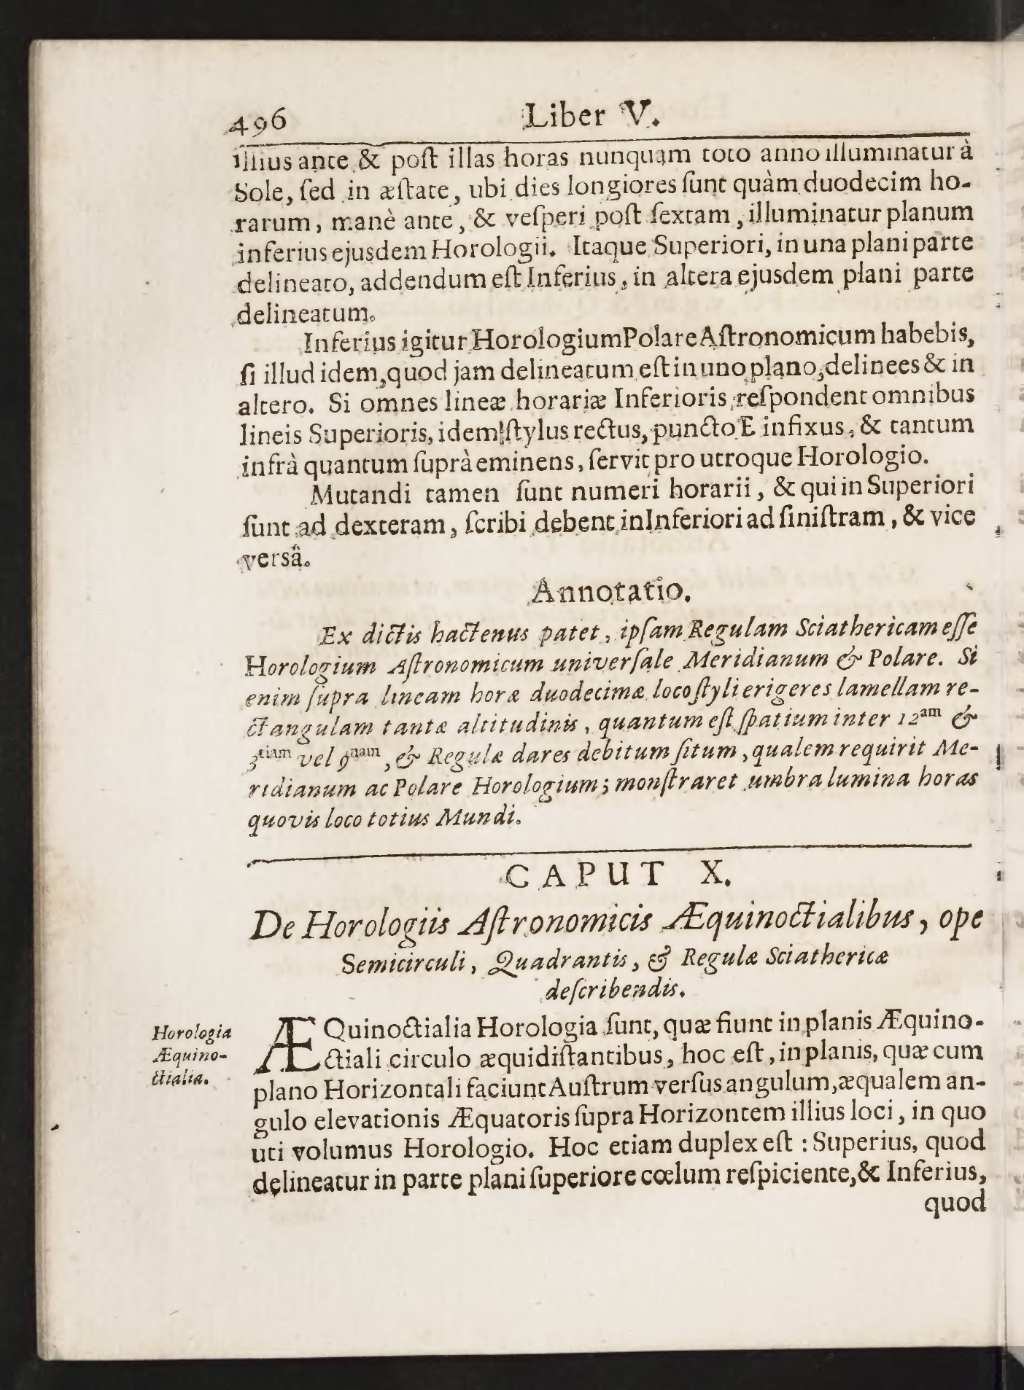 496 Liber V.
illius ante & poſt illas horas nunquam toto anno illuminatur à
Sole, ſed in æſtate, ubi dies longiores ſunt quàm duodecim ho-
rarum, manè ante, & veſperi poſt ſextam, illuminatur planum
inferius ejusdem Horologii. Itaque Superiori, in una plani parte
delineato, addendum eſt Inferius, in altera ejusdem plani parte
delineatum.
Inferius igitur Horologium Polare Aſtronomicum habebis,
ſi illud idem, quod jam delineatum eſt in uno plano, delinees & in
altero. Si omnes lineæ horariæ Inferioris reſpondent omnibus
lineis Superioris, idem ſtylus rectus, puncto E infixus, & tantum
infrà quantum ſuprà eminens, ſervit pro utroque Horologio.
Mutandi tamen ſunt numeri horarii, & qui in Superiori
ſunt ad dexteram, ſcribi debent in Inferiori ad ſiniſtram, & vice
versâ.
Annotatio.
Ex dictis hactenus patet, ipſam Regulam Sciathericam eſſe
Horologium Aſtronomicum univerſale Meridianum & Polare. Si
enim ſupra lineam horæ duodecimæ loco ſtyli erigeres lamellam re-
ctangulam tantæ altitudinis, quantum eſt ſpatium inter 12am &
3tiam vel 9nam, & Regulæ dares debitum ſitum, qualem requirit Me-
ridianum ac Polare Horologium; monſtraret umbra lumina horas
quovis loco totius Mundi.
CAPUT X.
De Horologiis Aſtronomicis Æquinoctialibus, ope
Semicirculi, Quadrantis, & Regulæ Sciathericæ
deſcribendis.
Horologia
Æquino-
ctialia.
ÆQuinoctialia Horologia ſunt, quæ fiunt in planis Æquino-
ctiali circulo æquidiſtantibus, hoc eſt, in planis, quæ cum
plano Horizontali faciunt Auſtrum verſus angulum, æqualem an-
gulo elevationis Æquatoris ſupra Horizontem illius loci, in quo
uti volumus Horologio. Hoc etiam duplex eſt: Superius, quod
delineatur in parte plani ſuperiore cœlum reſpiciente, & Inferius,
quod